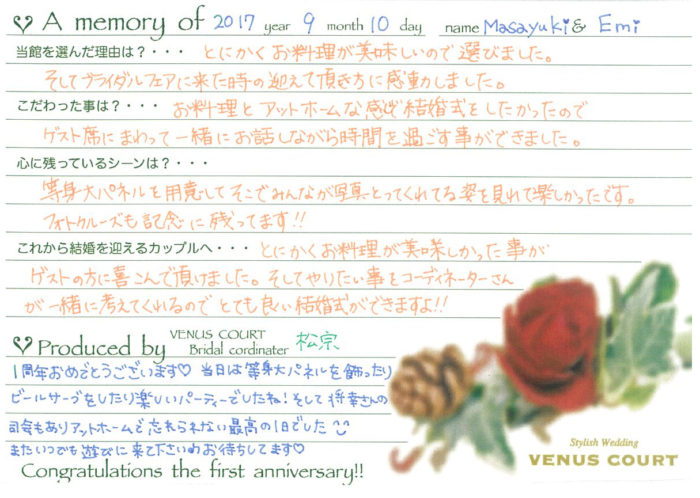 A memory of 2017 year 9 month 10 day name Masayuki & Emi
当館を選んだ理由は？・・・ とにかくお料理が美味しいので選びました。
そしてブライダルフェアに来た時の迎えて頂き方に感動しました。
こだわった事は？・・・ お料理とアットホームな感じ結婚式をしたかったので
ゲスト席にまわって一緒にお話しながら時間を過ごす事ができました。
心に残っているシーンは？・・・
等身大パネルを用意してそこでみんなが写真とってくれてる姿を見れて楽しかったです。
フォトクルーズも記念に残ってます!!
これから結婚を迎えるカップルへ・・・ とにかくお料理が美味しかった事が
ゲストの方に喜こんで頂けました。そしてやりたい事をコーディネーターさん
が一緒に考えてくれるのでとても良い結婚式ができますよ!!
Produced by VENUS COURT Bridal cordinater 松宗
1周年おめでとうございます♡ 当日は等身大パネルを飾ったり
ビールサーブをしたり楽しいパーティーでしたね!そして将幸さんの
司会もありアットホームで忘れられない最高の1日でした
またいつでも遊びに来て下さいねお待ちしてます♡
Congratulations the first anniversary!!
Stylish Wedding
VENUS COURT